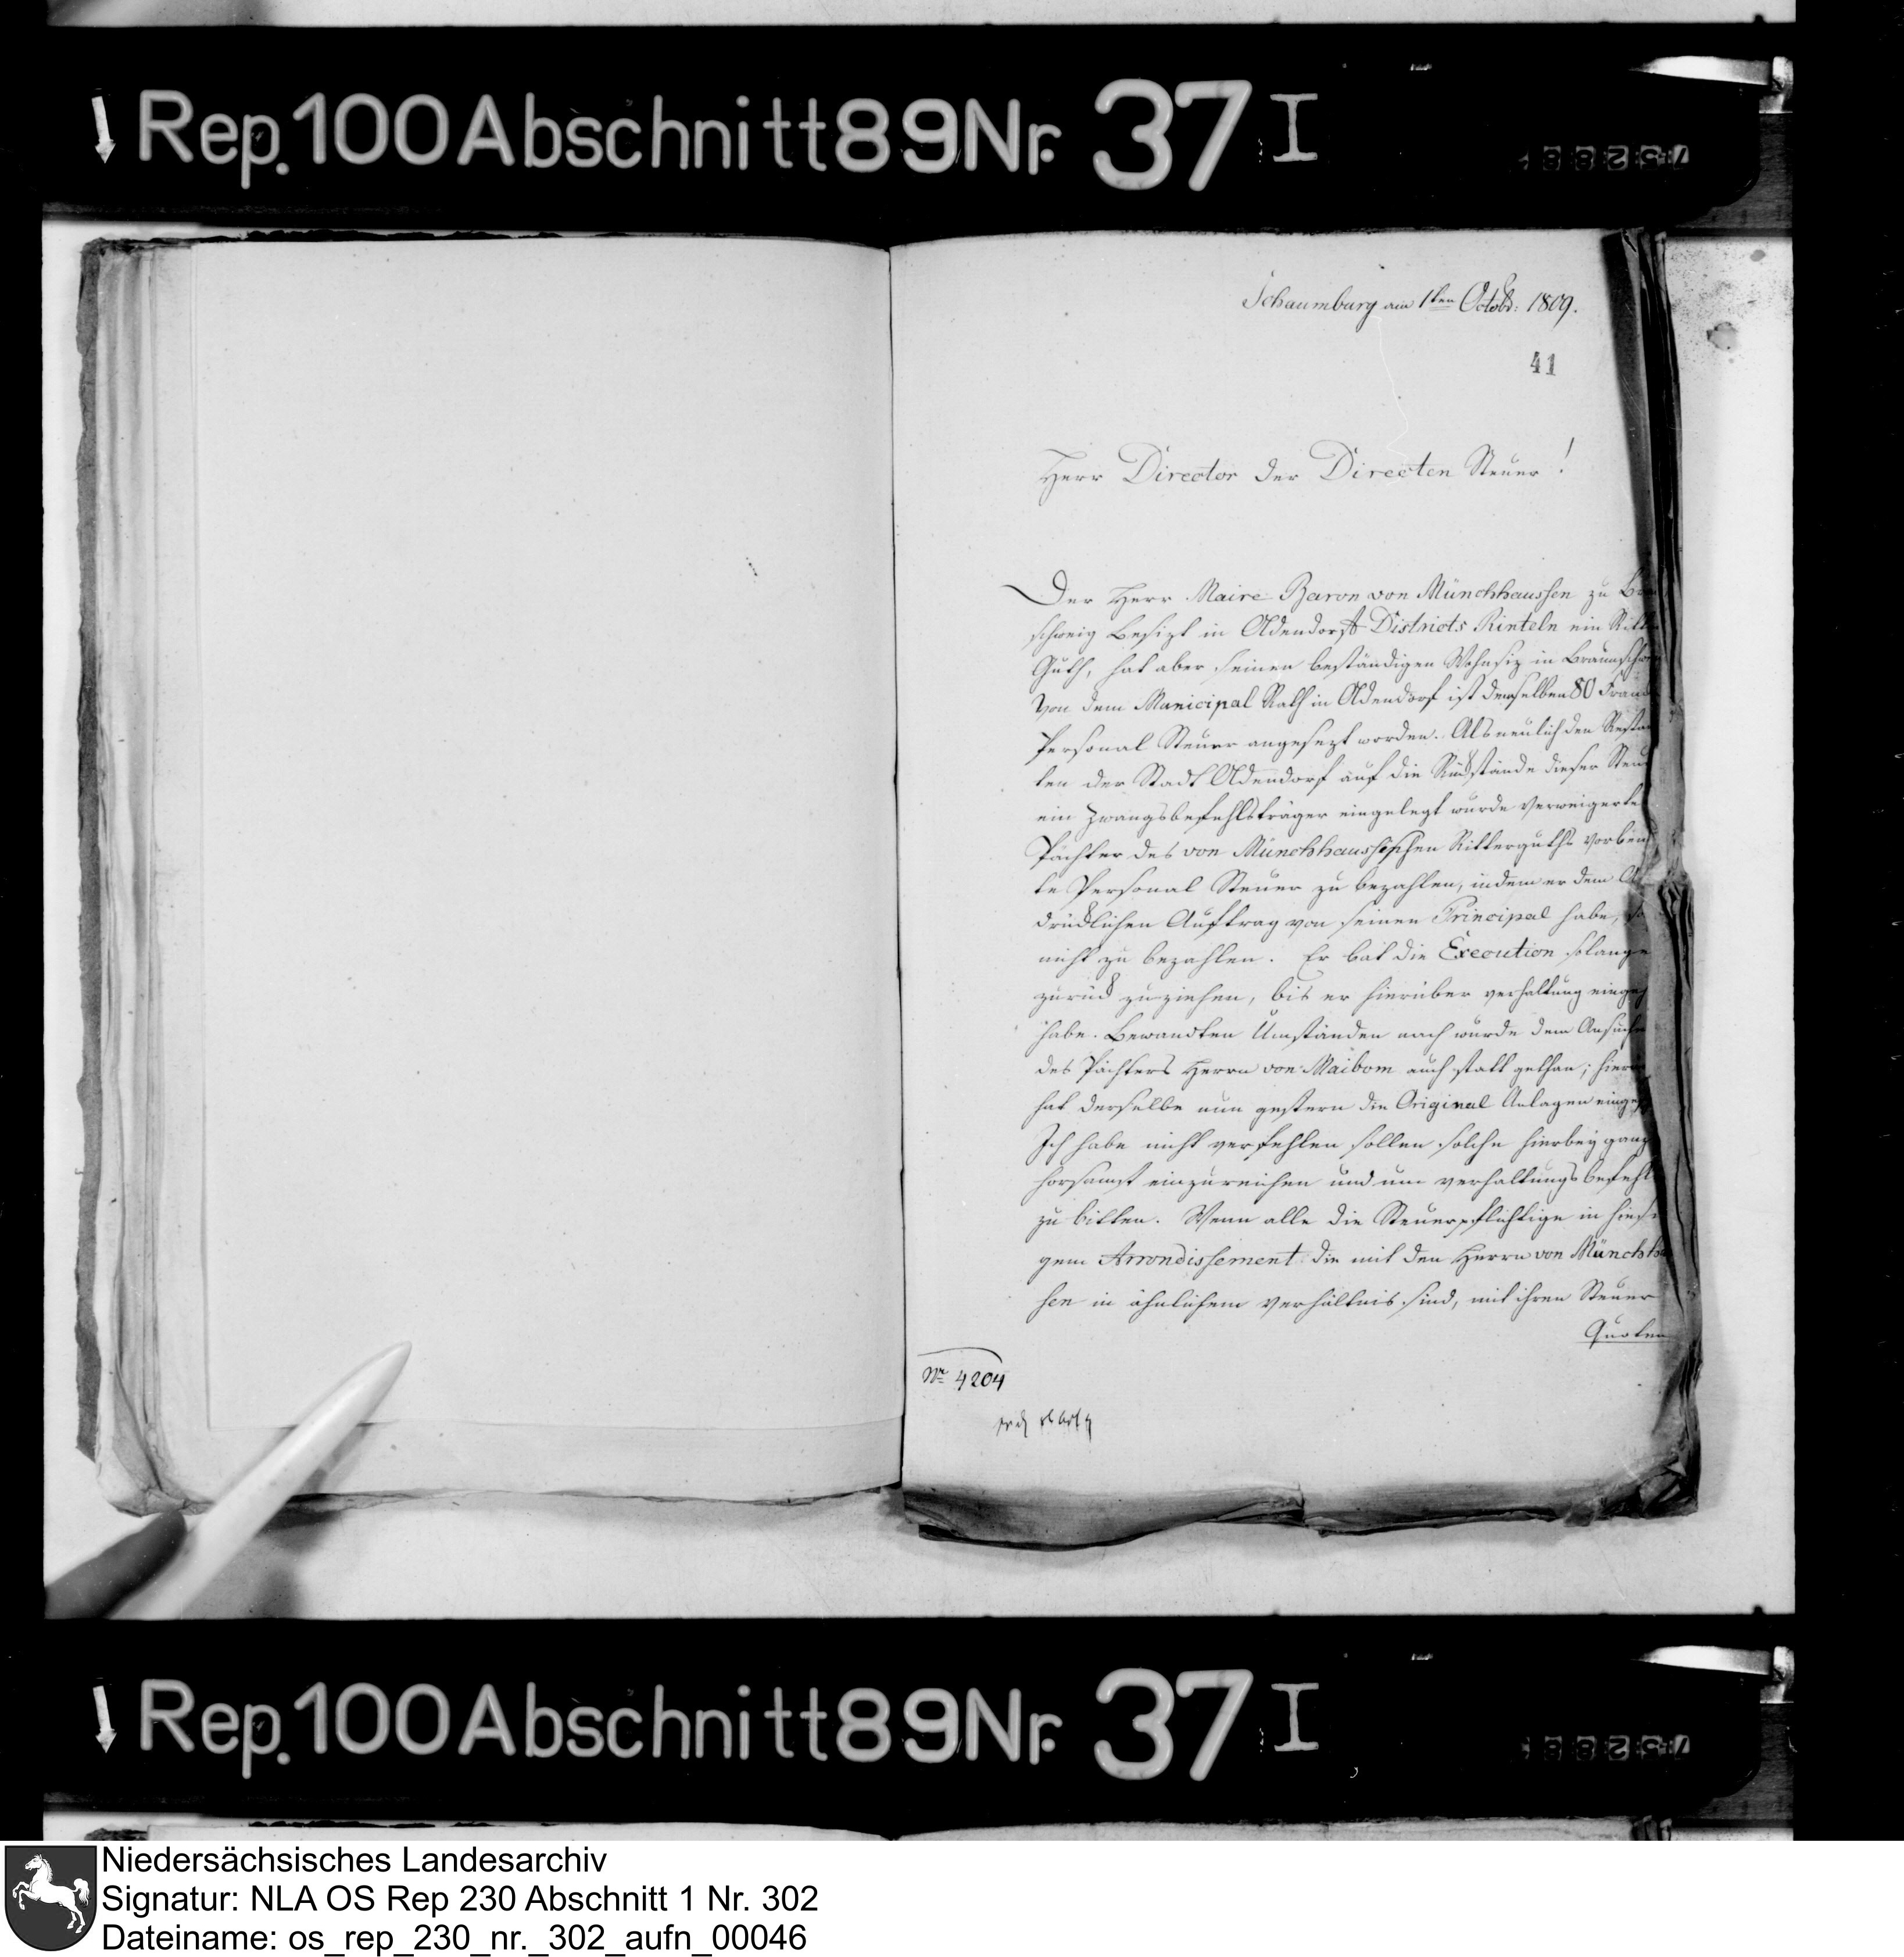 Rep. 100 Abschnitt 89 Nr. 37 I
Schaumburg am 1ten Octobr: 1809.
41
Herr Director der Directen Steuer!
Der Herr Maire Baron von Münchhaussen zu Brau
schweig besizt in Oldendorff Districts Rinteln ein Ritt
Guth, hat aber seinen beständigen Wohnsiz in Braunschw
Von dem Municipal Rath in Oldendorf ist demselben 80 Frank
Personal Steuer angesezt worden. Als neulich den Restan
ten der Stadt Oldendorf auf die Rückstände dieser Steu
ein Zwangsbefehlsträger eingelegt wurde verweigerte
Pächter des von Münchhaussischen Ritterguths
te Personal Steuer zu bezahlen, indem er dem
drücklichen Auftrag von seinen Principal habe, so
nicht zu bezahlen. Er bat die Execution solange
zurück zu ziehen, bis er hierüber verhaltung
habe. Bewandten Umständen nach wurde dem Ansuchen
des Pächters Herrn von Maibom auch statt gethan; hier
hat derselbe nun gestern die Original Anlagen
Ich habe nicht verfehlen sollen solche hierbey ganz
horsamst einzureichen und um verhaltungsbefehl
zu bitten. Wenn alle die Steuerpflichtige in hiesi
gem Arrondissement die mit den Herrn von Münchha
sen in ähnlichem verhältnis sind, mit ihren Steuer
Quoten
Nr. 4204
Rep. 100 Abschnitt 89 Nr. 37 I
Niedersächsisches Landesarchiv
Signatur: NLA OS Rep 230 Abschnitt 1 Nr. 302
Dateiname: os_rep_230_nr._302_aufn_00046